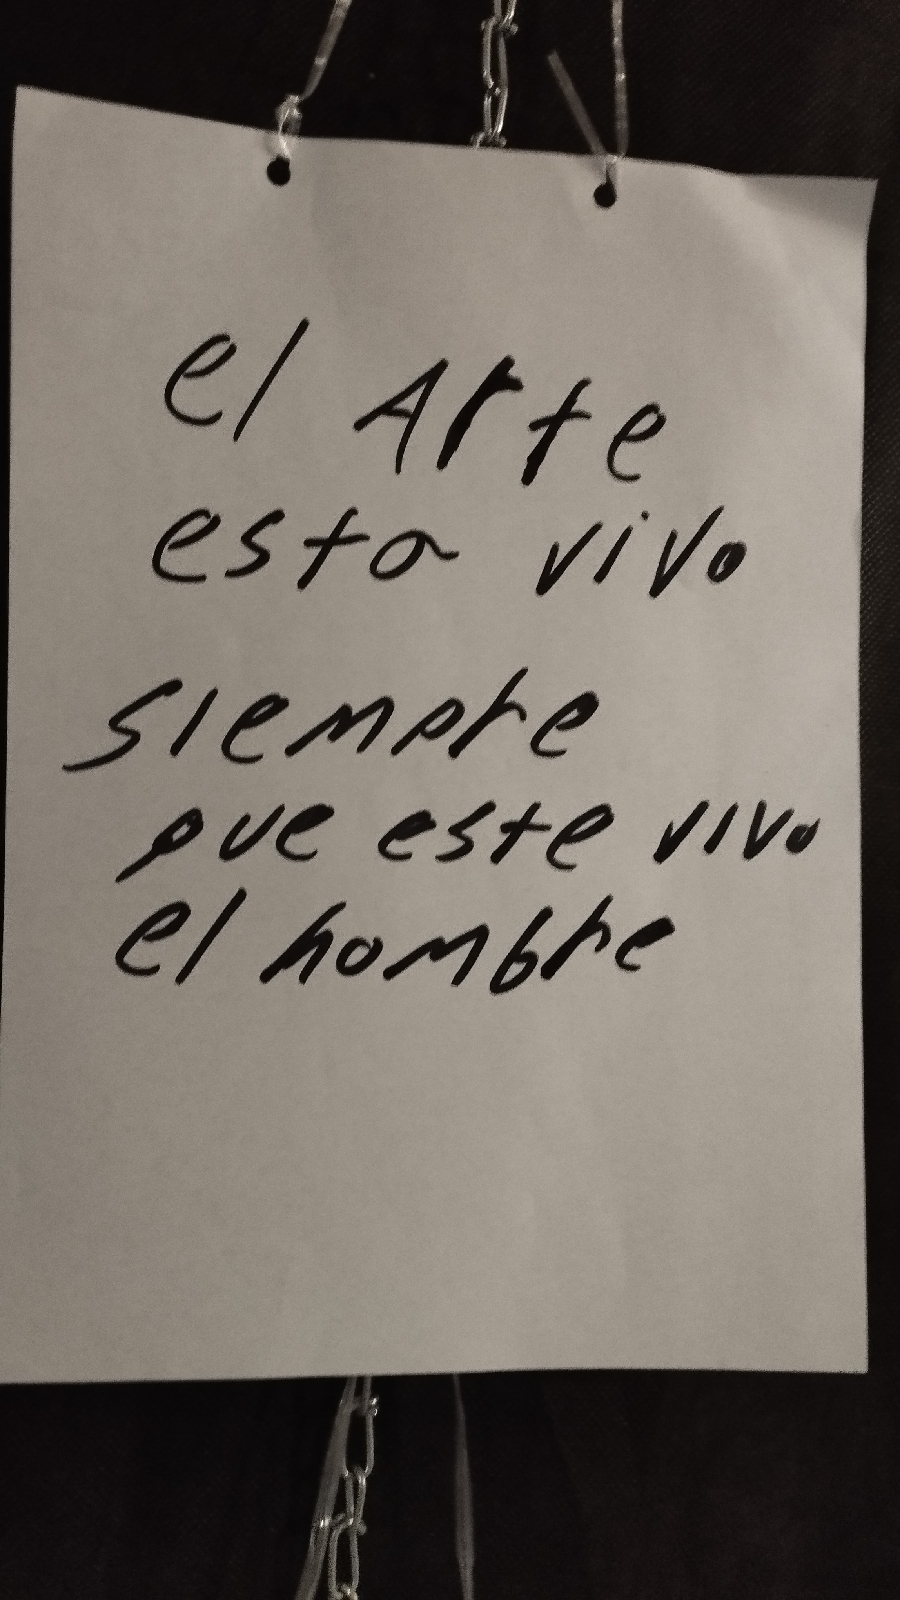 el Arte
esta vivo
siempre
que este vivo
el hombre